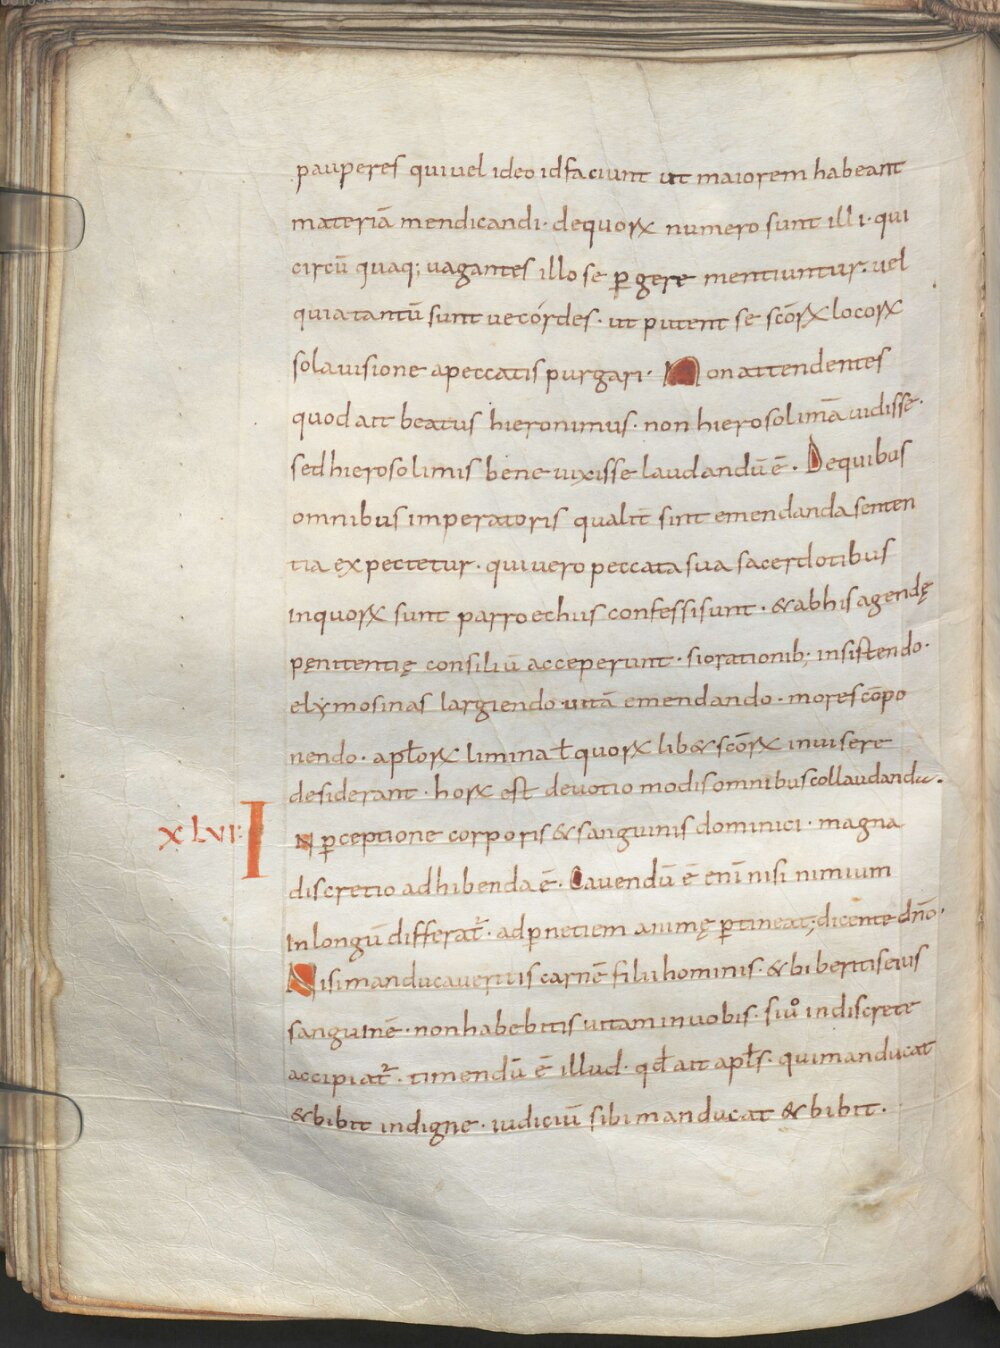 pauperes qui vel ideo id faciunt ut maiorem habeant
materiā mendicandi · de quorꝝ numero sunt illi · qui
circū quaq; vagantes illo se ꝑgere mentiuntur · vel
quia tantū sunt vecórdes · ut putent se scōrꝝ locorꝝ
sola uisione a peccatis purgari · Non attendentes
quod ait beatus hieronimus · non hierosolimā uidisse ·
sed hierosolimis bene uixisse laudandū ē · De quibus
omnibus imperatoris qualit̄ sint emendanda senten
tia expectetur · qui uero peccata sua sacerdotibus
in quorꝝ sunt parroechiis confessi sunt · & ab his agendę
pęnitentię consiliū acceperunt · si orationib; insistendo ·
elymosinas largiendo uitā emendando · mores cōpo
nendo · apl̄orꝝ limina l̄ quorꝝ lib& scōrꝝ inuisere
desiderant · horꝝ est deuotio modis omnibus collaudanda ·
XLVI: IN ꝑceptione corporis & sanguinis dominici · magna
discretio adhibenda ē · Cauendū ē enī nisi nimium
in longū differat᷑ · ad ꝑnetiem animę ꝑtineat; dicente dn̄o ·
Nisi manducaueritis carnē filii hominis · & biberitis eius
sanguinē · non habebitis uitam in uobis · si uͦ indiscrete
accipiat᷑ · timendū ē illud · qd̄ ait apl̄s · qui manducat
& bibit indigne · iudiciū sibi manducat & bibit ·